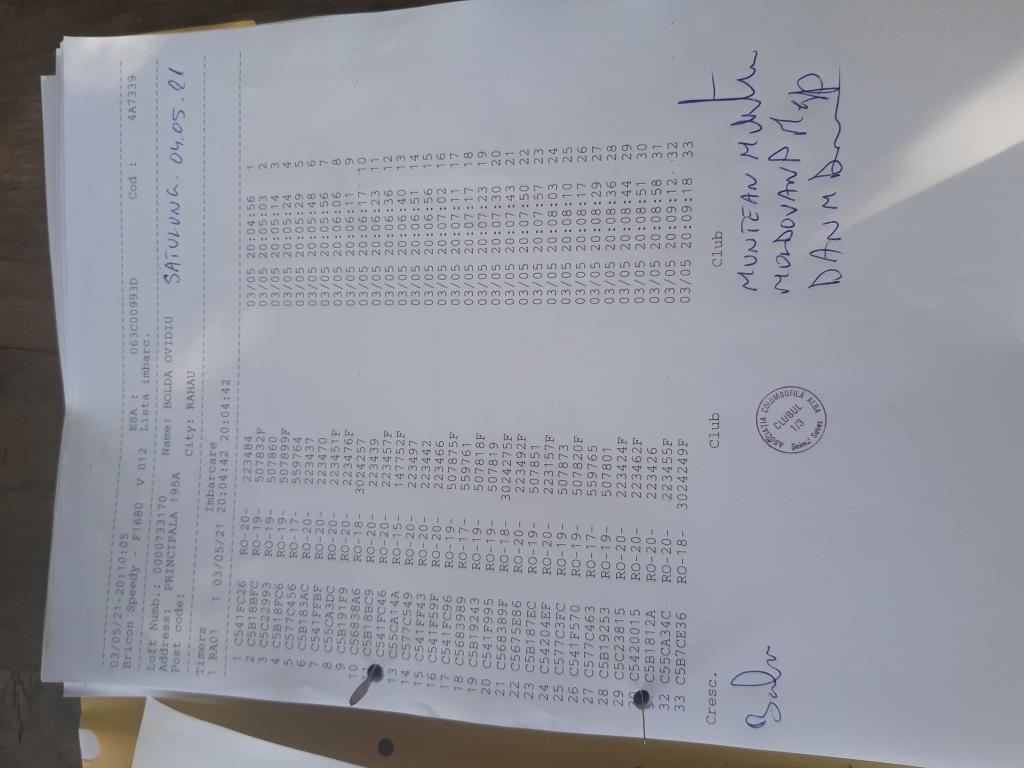 03/05/21-20:10:05
Bricon Speedy - F1680 V 012 ESA : 063C00993D Cod : 4A7339
Lista imbarc.
Loft Numb.: 0000733170 Name: BOLDA OVIDIU SATULUNG. 04.05.21
Address: PRINCIPALA 195A
Post code: City: RAHAU
Timers Imbarcare
1 RAD1 1 03/05/21 20:04:42 20:04:42
1 C541FC26 RO-20- 223484 03/05 20:04:56 1
2 C5B18BFC RO-19- 507832F 03/05 20:05:03 2
3 C5C22993 RO-19- 507860 03/05 20:05:14 3
4 C5B18FC6 RO-19- 507899F 03/05 20:05:24 4
5 C577C456 RO-17- 559764 03/05 20:05:29 5
6 C5B183AC RO-20- 223437 03/05 20:05:48 6
7 C541FFBF RO-20- 223470 03/05 20:05:56 7
8 C55CA3DC RO-20- 223451F 03/05 8
9 C5B191F9 RO-20- 223476F 03/05 9
10 C56838A6 RO-18- 3024257 03/05 20:06:17 10
C5B18BC9 RO-20- 223439 03/05 20:06:23 11
C541FC46 RO-20- 223457F 03/05 20:06:36 12
13 C55CA14A RO-15- 147752F 03/05 20:06:40 13
14 C577C549 RO-20- 223497 03/05 20:06:51 14
15 C541FF43 RO-20- 223442 03/05 20:06:56 15
16 C541F59F RO-20- 223466 03/05 20:07:02 16
17 C541FC96 RO-19- 507875F 03/05 20:07:11 17
18 C5683989 RO-17- 559761 03/05 20:07:17 18
19 C5B19243 RO-19- 507818F 03/05 20:07:23 19
20 C541F995 RO-19- 507819 03/05 20:07:30 20
21 C568389F RO-18- 3024275F 03/05 20:07:43 21
22 C5675E86 RO-20- 223492F 03/05 20:07:50 22
23 C5B187EC RO-19- 507851 03/05 20:07:57 23
24 C54204EF RO-20- 223157F 03/05 20:08:03 24
25 C577C3FC RO-19- 507873 03/05 20:08:10 25
26 C541F570 RO-19- 507820F 03/05 20:08:17 26
27 C577C463 RO-17- 559765 03/05 20:08:29 27
28 C5B19253 RO-19- 507801 03/05 20:08:36 28
29 C5C23815 RO-20- 223424F 03/05 20:08:44 29
30 C5420015 RO-20- 223462F 03/05 20:08:51 30
C5B1812A RO-20- 223426 03/05 20:08:58 31
32 C55CA34C RO-20- 223455F 03/05 20:09:12 32
33 C5B7CE36 RO-18- 3022249F 03/05 20:09:18 33
Cresc. Club Club
MUNTEAN
MOLDOVAN P
DAN M
ASOCIATIA COLUMBOFILA ALBA
CLUBUL
1/3
Sebes